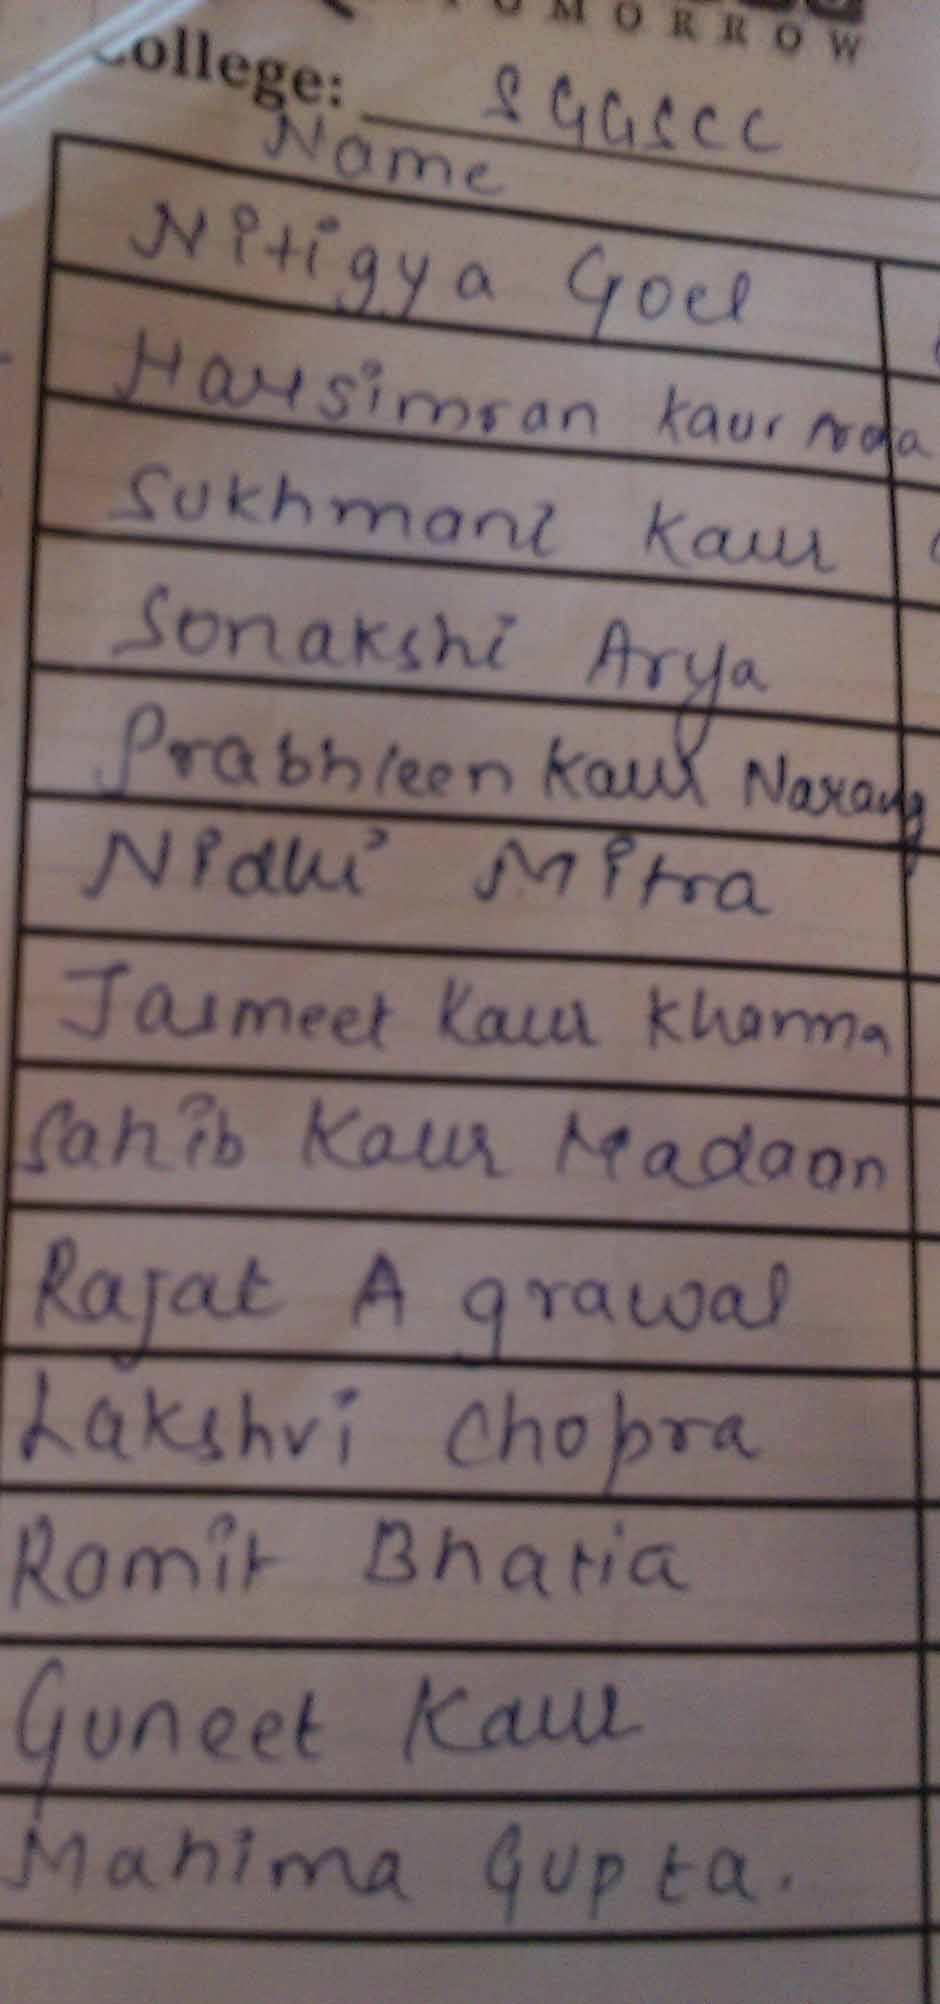 TOMORROW
College: SGGSCC
Name
Nitigya Goel
Harsimran Kaur Arora
Sukhmani Kaur
Sonakshi Arya
Prabhleen Kaur Narang
Nidhi Mitra
Jasmeet Kaur Khanna
Sahib Kaur Madaan
Rajat Agrawal
Lakshvi Chopra
Romit Bhatia
Guneet Kaur
Mahima Gupta.